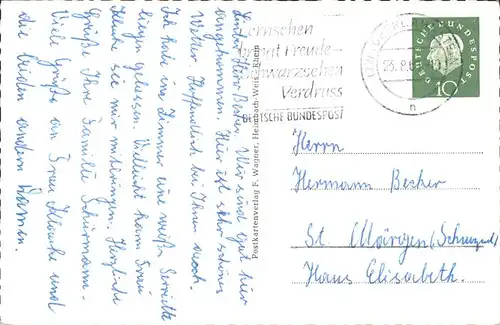 Lieber Herr Becher. Wir sind gut hier
angekommen. Hier ist sehr schönes
Wetter. Hoffendlich bei Ihnen auch.
Ich habe im Zimmer eine weiße Serviette
liegen gelassen. Vielleicht kann Frau
Klauke sie mir mitbringen. Herzliche
Grüße Ihre Familie Schürmann.
Viele Grüße an Frau Klauke und
die beiden andern Damen.
Postkartenverlag F. Wagner, Heimbach-Weis a. Rhein
Fernsehen
bringt Freude
Schwarzsehen
Verdruss
DEUTSCHE BUNDESPOST
DEUTSCHE BUNDESPOST
10
Herrn
Hermann Becher
St. Märgen (Schwzwd)
Haus Elisabeth.